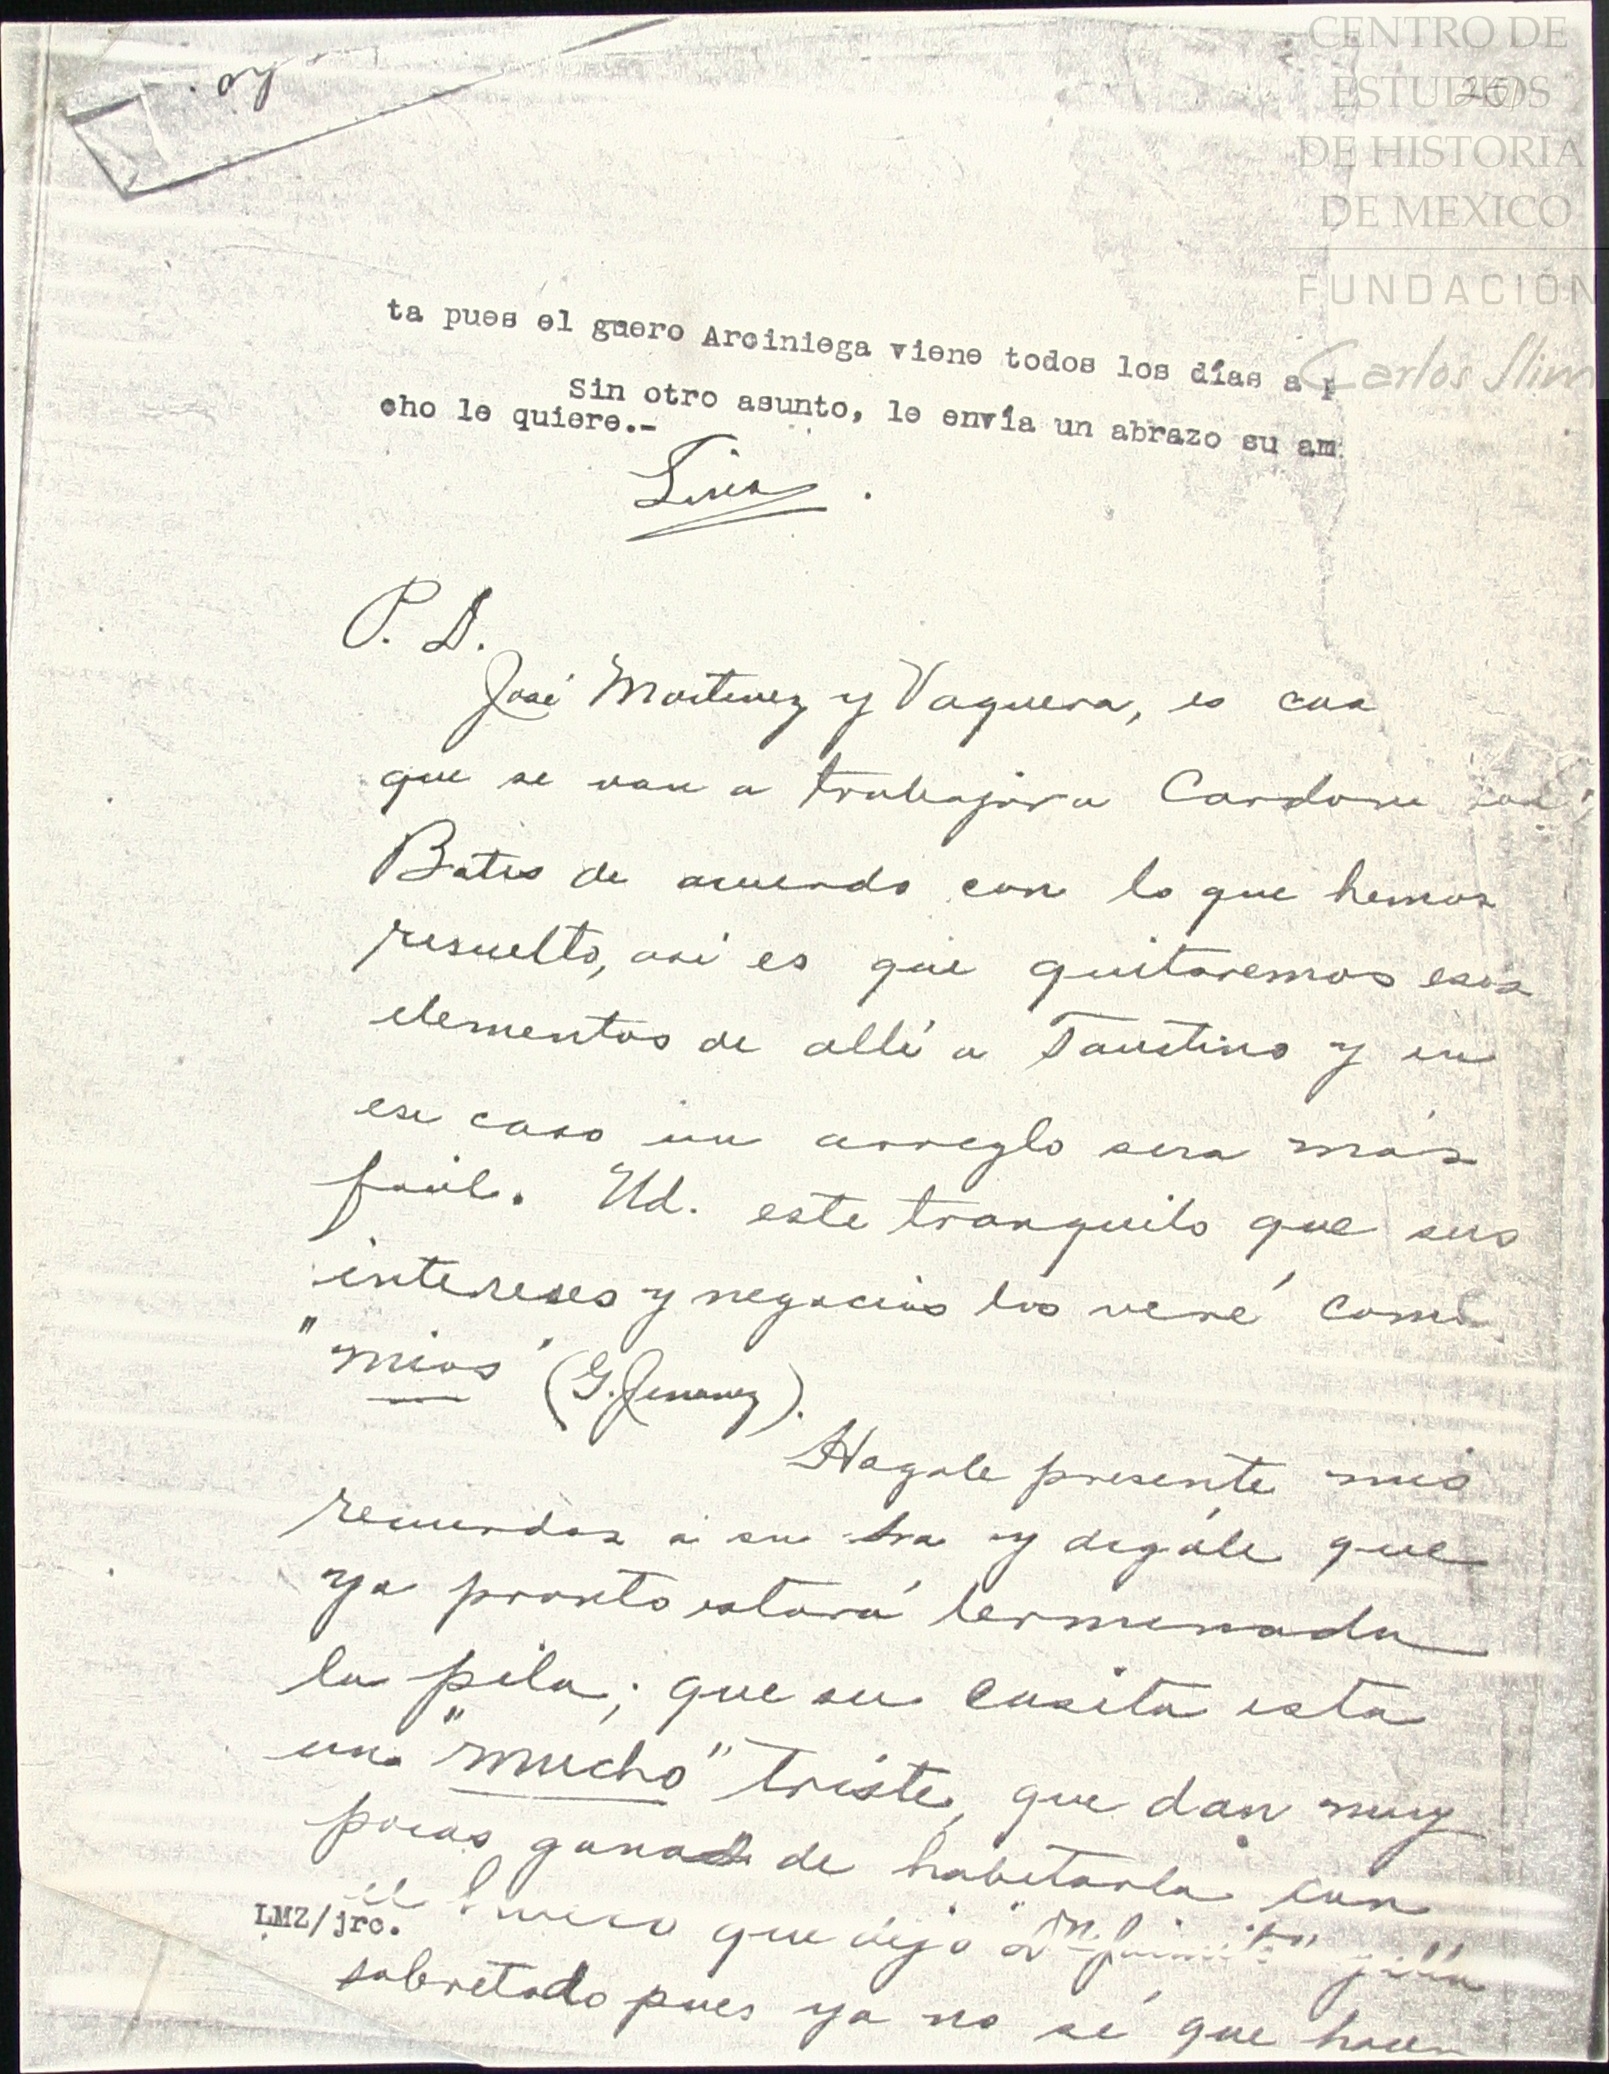 CENTRO DE
ESTUDIOS
DE HISTORIA
DE MEXICO
FUNDACIÓN
Carlos Slim
ta pues el guero Arciniega viene todos los días a p
Sin otro asunto, le envía un abrazo su am
cho le quiere.-
P. D.
José Martinez y Vaquera, es cosa
que se van a trabajar a Cardona con
Bates de acuerdo con lo que hemos
resuelto, asi es que quitaremos esos
elementos de allí a Faustino y en
ese caso un arreglo sera más
facil. Ud. este tranquilo que sus
intereses y negocios los veré como
"mios" (G. Jimenez).
Hagale presente mis
recuerdos a su Sra y digále que
ya pronto estará terminada
la pila; que su casita esta
un "mucho" triste, que dan muy
pocas ganas de habitarla con
el hueco que dejó
LMZ/jrc.
sobretodo pues ya no sé que hacen